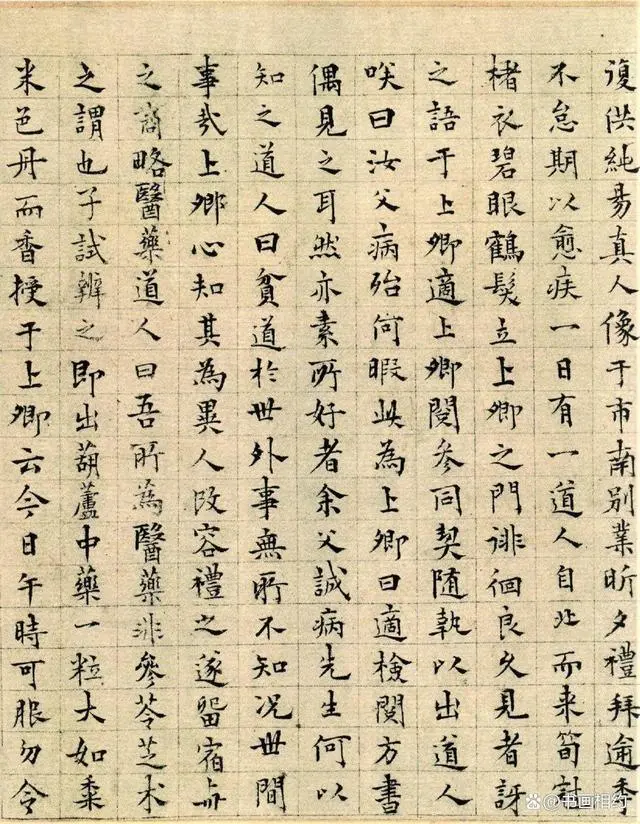 復供純昜真人像于市南別業昕夕禮拜逾季
不怠期以愈疾一日有一道人自北而来筍
楮衣碧眼鶴髮立上卿之門徘徊良久見者訝
之語于上卿適上卿閱參同契随執以出道人
咲曰汝父病殆何暇此為上卿曰適檢閱方書
偶見之耳然亦素所好者余父誠病先生何以
知之道人曰貧道於世外事無所不知况世間
事哉上卿心知其為異人改容禮之遂留宿与
之商略醫藥道人曰吾所為醫藥非參苓芝术
之謂也子試辨之即出葫蘆中藥一粒大如黍
米色丹而香授于上卿云今日午時可服勿令
@书画相约